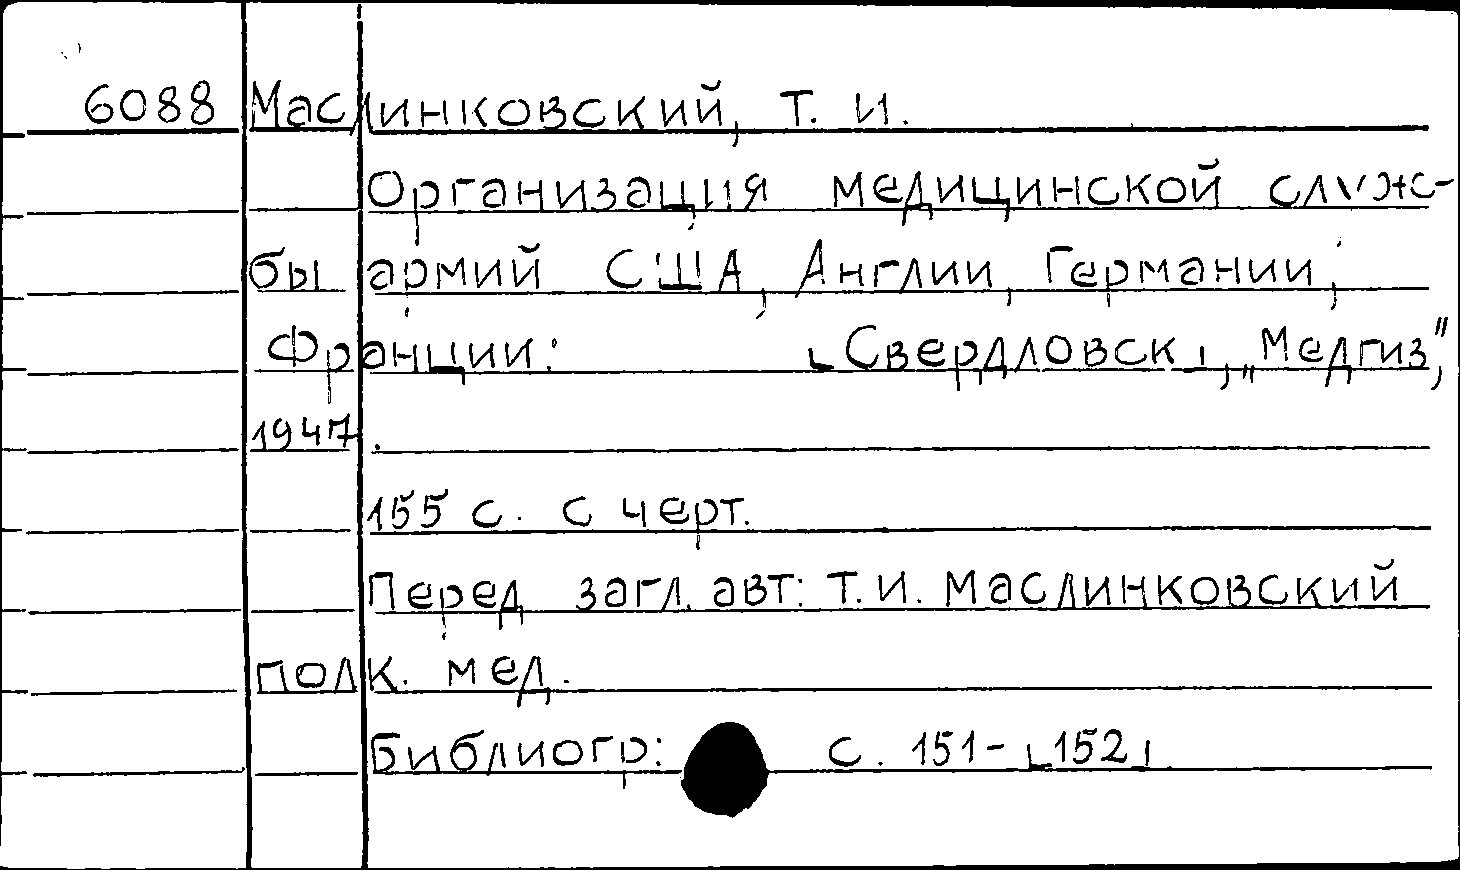 6088 Маслинковский, Т. И.
Организация медицинской служ-
бы армий США, Англии, Германии,
Франции: [Свердловск], „Медгиз",
1947.
155 с. с черт.
Перед загл. авт: Т. И. Маслинковский
полк. мед.
Библиогр: с. 151-[152]